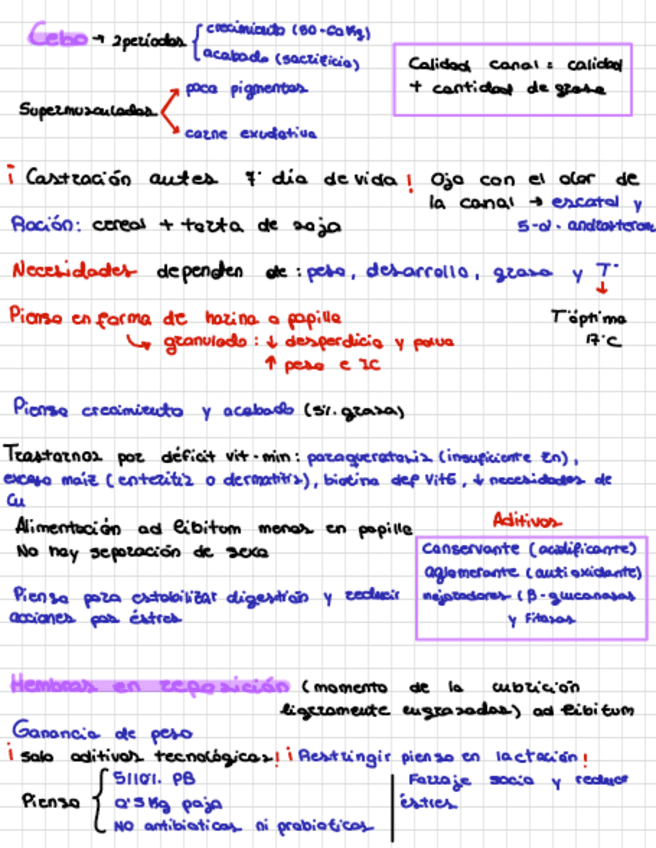 Cebo → 2 períodos { crecimiento (50-60Kg)
acabado (sacrificio)
Calidad canal: calidad
+ cantidad de grasa
Supermusculados
poca pigmentas
carne exudativa
¡Castración antes 7º día de vida! Ojo con el olor de
la canal → escatol y
5-α-androsterona
Ración: cereal + torta de soja
Necesidades dependen de: peso, desarrollo, grasa y Tº
↓
Tº óptima
17ºC
Pienso en forma de harina o papilla
↳ granulado: ↓ desperdicio y polvo
↑ peso e IC
Pienso crecimiento y acabado (5% grasa)
Trastornos por déficit vit-min: paraqueratosis (insuficiente Zn),
exceso maíz (enteritis o dermatitis), biotina dep VitE, ↓ necesidades de
Cu
Alimentación ad libitum menos en papilla
No hay separación de sexo
Aditivos
Conservante (acidificante)
aglomerante (antioxidante)
mejoradores (β-glucanasas
y fitasas
Pienso para estabilizar digestión y reducir
acciones por éstres
Hembras en reposición (momento de la cubrición
ligeramente engrasadas) ad libitum
Ganancia de peso
¡Solo aditivos tecnológicos! ¡Restringir pienso en lactación!
Pienso {
PB
0'5 Kg paja
NO antibioticos ni probioticos
Forraje sacia y reduce
éstres